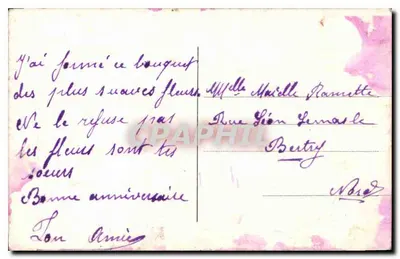 J'ai formé ce bouquet
des plus suaves fleurs
Ne le refuse pas
les fleurs sont tes
soeurs
Bonne anniversaire
Ton Amie
Mlle Maielle Ramette
Rue Léon
Bertry
Nord
CPAPHIL